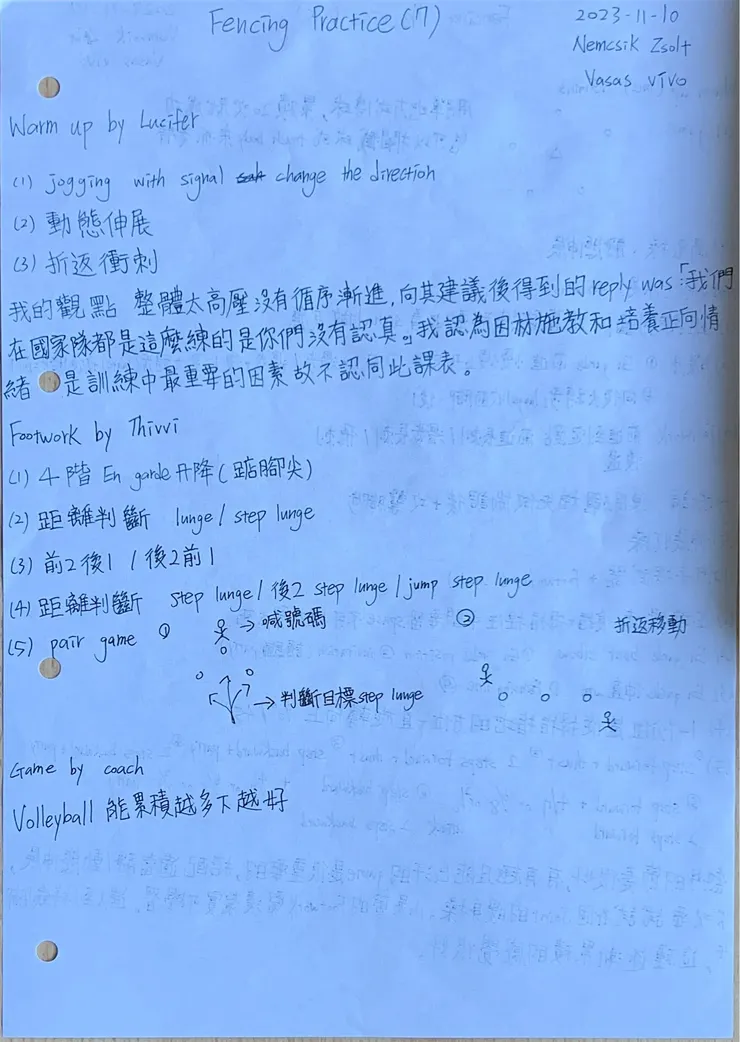 Fencing Practice (17)
2023-11-10
Nemcsik Zsolt
Vasas vívó
Warm up by Lucifer
(1) jogging with signal change the direction
(2) 動態伸展
(3) 折返衝刺
我的觀點 整體太高壓沒有循序漸進,向其建議後得到的reply was「我們
在國家隊都是這麼練的是你們沒有認真。」我認為因材施教和培養正向情
緒 是訓練中最重要的因素故不認同此課表。
Footwork by Thivvi
(1) 4階 En garde 升降(踮腳尖)
(2) 距離判斷 lunge / step lunge
(3) 前2後1 / 後2前1
(4) 距離判斷 step lunge / 後2 step lunge / jump step lunge
(5) pair game ① → 喊號碼 ② 折返移動
→ 判斷目標 step lunge
Game by coach
Volleyball 能累積越多下越好